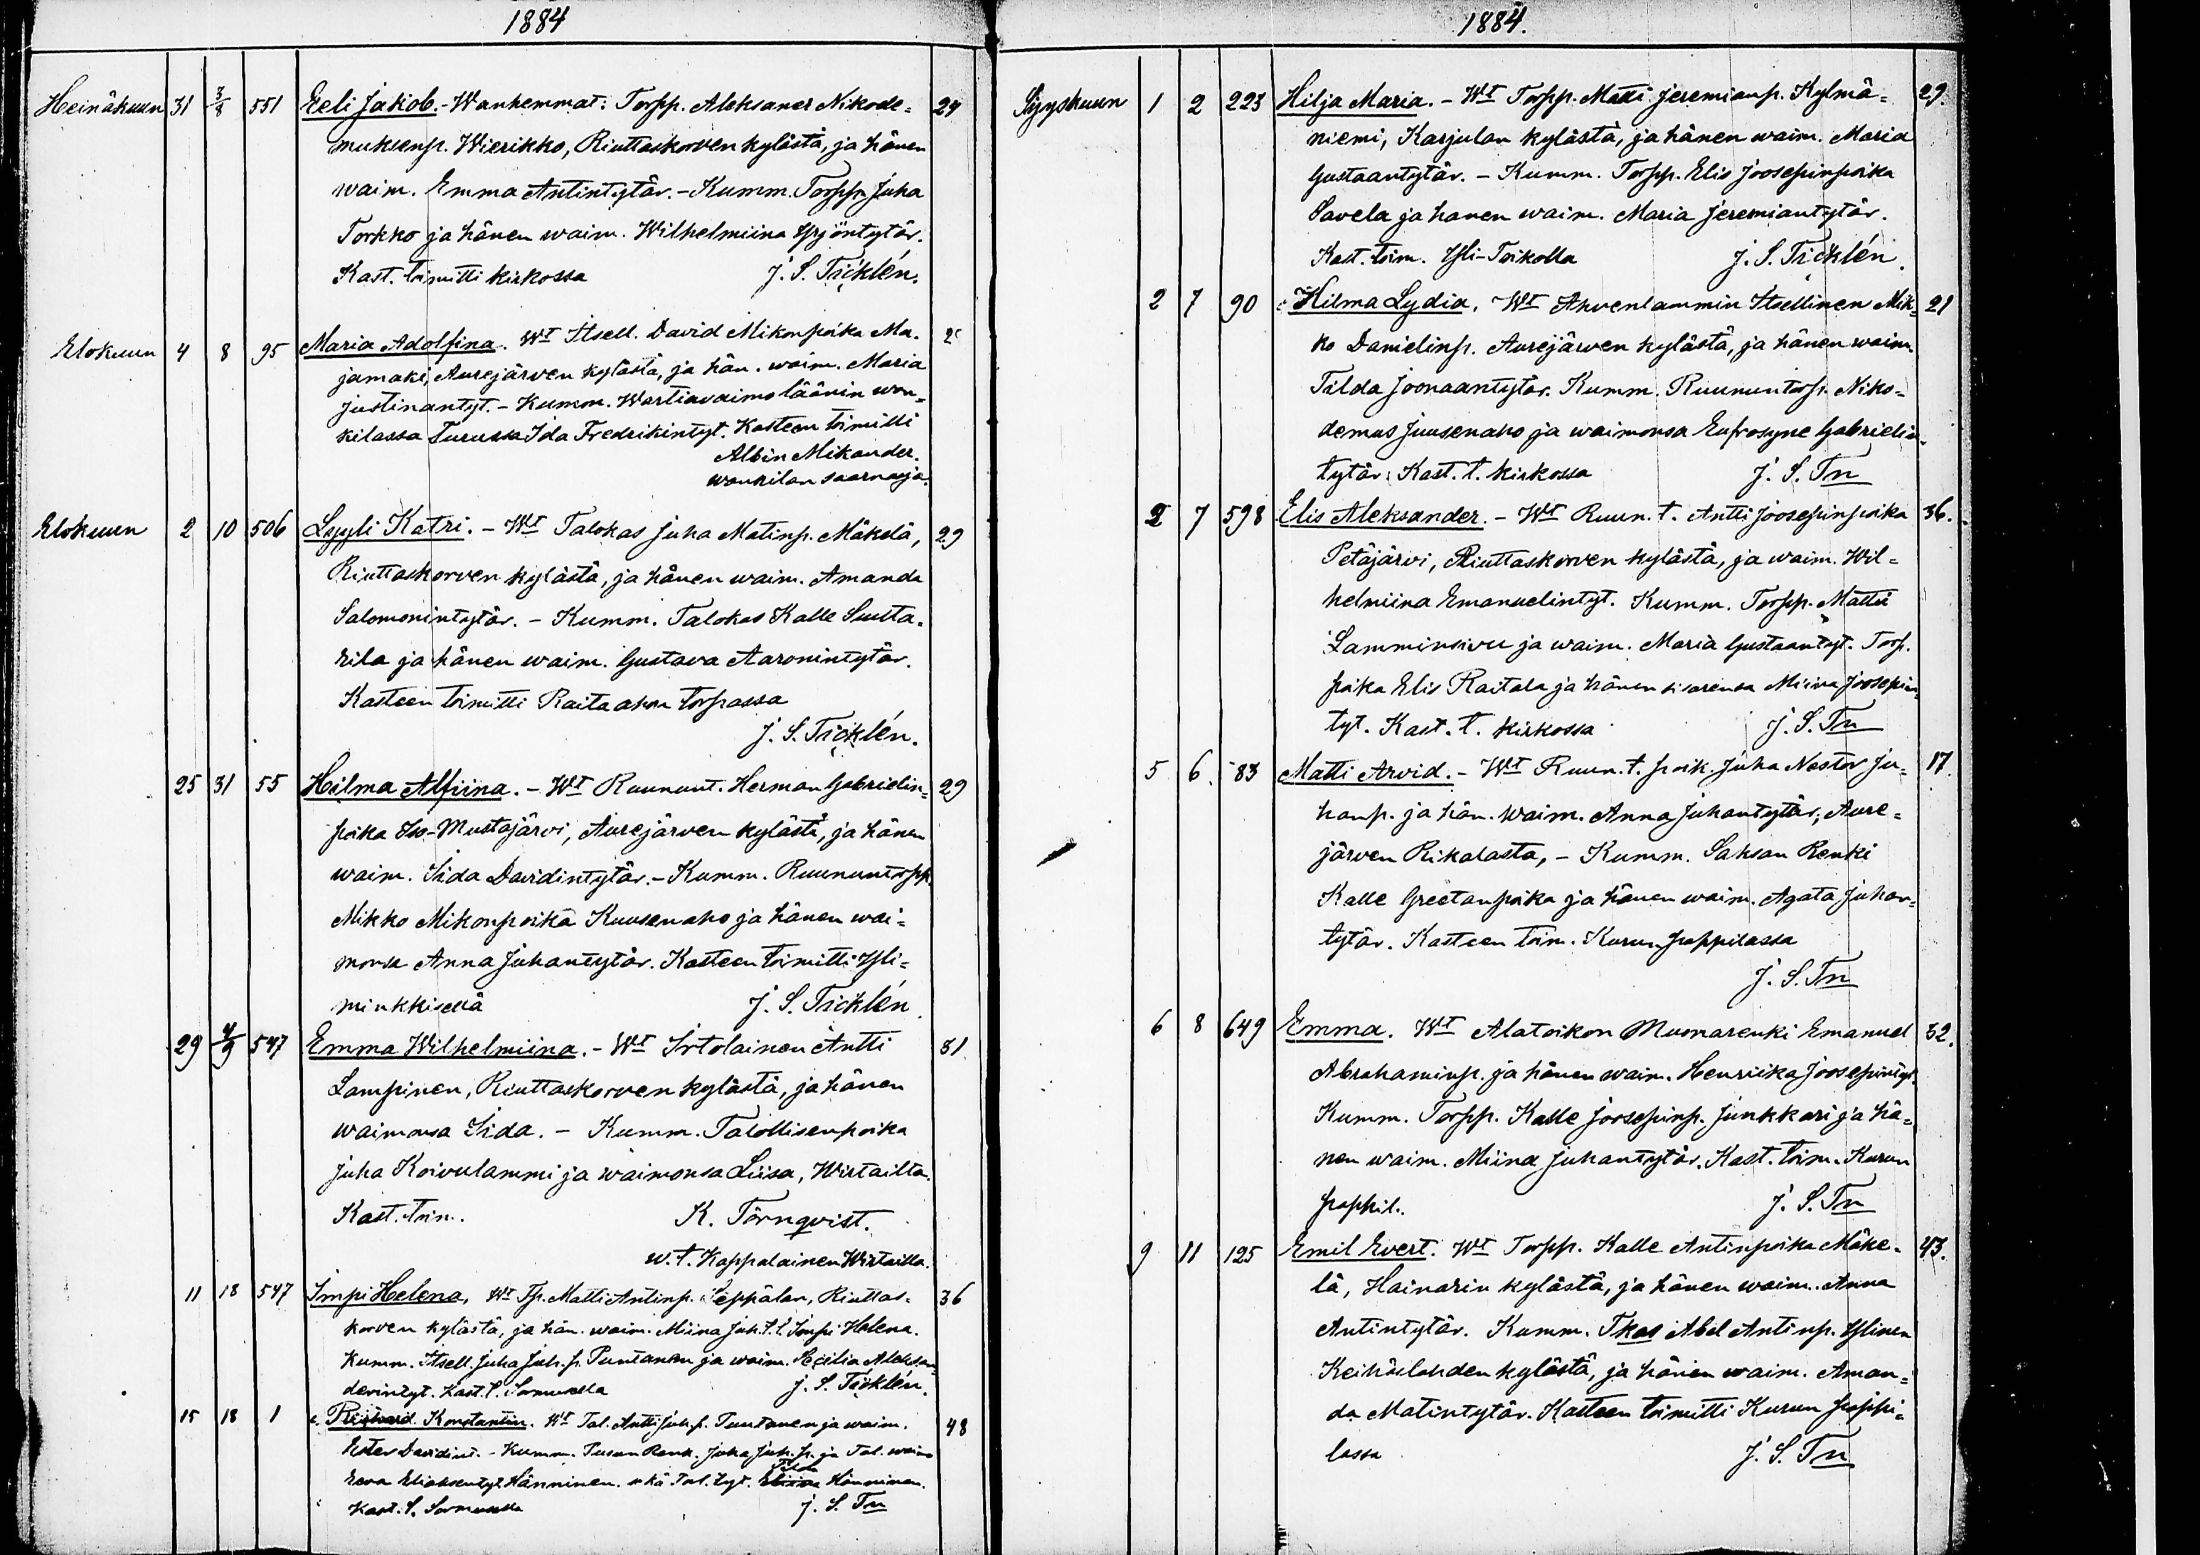 1884
Heinäkuun 31 3/8 551 Eeli Jakob. - Wanhemmat: Torpp. Aleksaner Nikode= 29
muksenp. Wierikko, Riuttaskorven kylästä, ja hänen
waim. Emma Antintytär. - Kumm. Torpp. Juha
Torkko ja hänen waim. Wilhelmiina Yrjöntytär.
Kast. toimitti kirkossa J. S. Ticklén.
Elokuun 4 8 95 Maria Adolfina. Wt Itsell. David Mikonpoika Ma.
jamaki, Aurejärven kylästä, ja hän. waim. Maria
Justinantyt. - Kumm. Wartiavaimo läänin wan=
kilassa Turussa Ida Fredrikintyt. Kasteen toimitti
Albin Mikander.
wankilan saarnaaja.
Elokuun 2 10 506 Lyyli Katri. - Wt Talokas Juha Matinp. Mäkelä, 29
Riuttaskorven kylästä, ja hänen waim. Amanda
Salomonintytär. - Kumm. Talokas Kalle Sutta.
kila ja hänen waim. Gustava Aaronintytär.
Kasteen toimitti Raitaahon torpassa
J. S. Ticklén.
25 31 55 Hilma Alfiina. - Wt Ruunant. Herman Gabrielin= 29
poika Iso-Mustajärvi, Aurejärven kylästä, ja hänen
waim. Iida Davidintytär. - Kumm. Ruununtorpp.
Mikko Mikonpoika Kuusenaho ja hänen wai=
monsa Anna Juhantytär. Kasteen toimitti Yli=
minkkisellä J. S. Ticklén
29 4/9 547 Emma Wilhelmiina. - Wt Irtolainen Antti 31
Lampinen, Riuttaskorven kylästä, ja hänen
waimonsa Iida. - Kumm. Talollisenpoika
Juha Koivulammi ja waimonsa Liisa, Wirtailta.
Kast. toim. K. Törnqvist.
w. t. Kappalainen Wirtailla.
11 18 547 Impi Helena, Wt Tp. Matti Antinp. Seppälän, Riuttas- 36
korven kylästä, ja hän. waim. Miina Juh. t. Impi Helena.
Kumm. Itsell. Juha Juh. p. Puntanen ja waim. Hecilia Aleksan
derintyt. Kast. t. Sormusella J. S. Ticklén.
15 18 1 Konstantin. Wt Tal. Antti Juh. p. Tuntanen ja waim. 48
Ester Davidint. - Kumm. Tusan Renk. Juha Juh. p. ja Tal. waimo
Eeva Eliaksentyt. Hänninen. sekä Tal. tyt. Tilda Hänninen.
Kast. t. Sormusella J. S. Tn
1884.
Syyskuun 1 2 223 Hilja Maria. - Wt Torpp. Matti Jeremianp. Kylmä= 29.
niemi, Karjulan kylästä, ja hänen waim. Maria
Gustaantytär. - Kumm. Torpp. Elis Joosepinpoika
Savela ja hanen waim. Maria Jeremiantytär.
Kast. toim. Yli-Toikolla J. S. Ticklén.
2 7 90 Hilma Lydia. Wt Ahvenlammin Itsellinen Mik= 21
ko Danielinp. Aurejärwen kylästä, ja hänen waim.
Tilda Joonaantytär. Kumm. Ruununtorp. Niko=
demus Juusenaho ja waimonsa Eufrosyne Gabrielin=
tytär. Kast. t. kirkossa J. S. Tn
2 7 598 Elis Aleksander. - Wt Ruun. t. Antti Joosepinpoika 36.
Petäjärvi, Riuttaskorven kylästä, ja waim. Wil=
helmiina Emanuelintyt. Kumm. Torpp. Matti
Lamminsivu ja waim. Maria Gustaantyt. Torp.
poika Elis Raitala ja hänen sisarensa Miina Joosepin=
tyt. Kast. t. kirkossa J. S. Tn
5 6. 83 Matti Arvid. - Wt Ruun. t. poik. Juha Nestor Ju= 17.
hanp. ja hän. waim. Anna Juhantytär, Aure=
järven Rikalasta, - Kumm. Sahsan Renki
Kalle Greetanpoika ja hänen waim. Agata Juhan=
tytär. Kasteen toim. Kurun pappilassa
J. S. Tn
6 8 649 Emma. Wt Alatoikon Muonarenki Emanuel 32.
Abrahaminp. ja hänen waim. Henriika Joosepintyt.
Kumm. Torpp. Kalle Joosepinp. Junkkari ja hä=
nen waim. Miina Juhantytär. Kast. toim. Kurun
pappil. J. S. Tn
9 11 125 Emil Evert. Wt Torpp. Kalle Antinpoika Mäke= 43.
lä, Hainarin kylästä, ja hänen waim. Anna
Antintytär. Kumm. Tkas Abel Antinp. Ylinen
Keihäslahden kylästä, ja hänen waim. Aman=
da Matintytär. Kasteen toimitti Kurun pappi=
lassa J. S. Tn